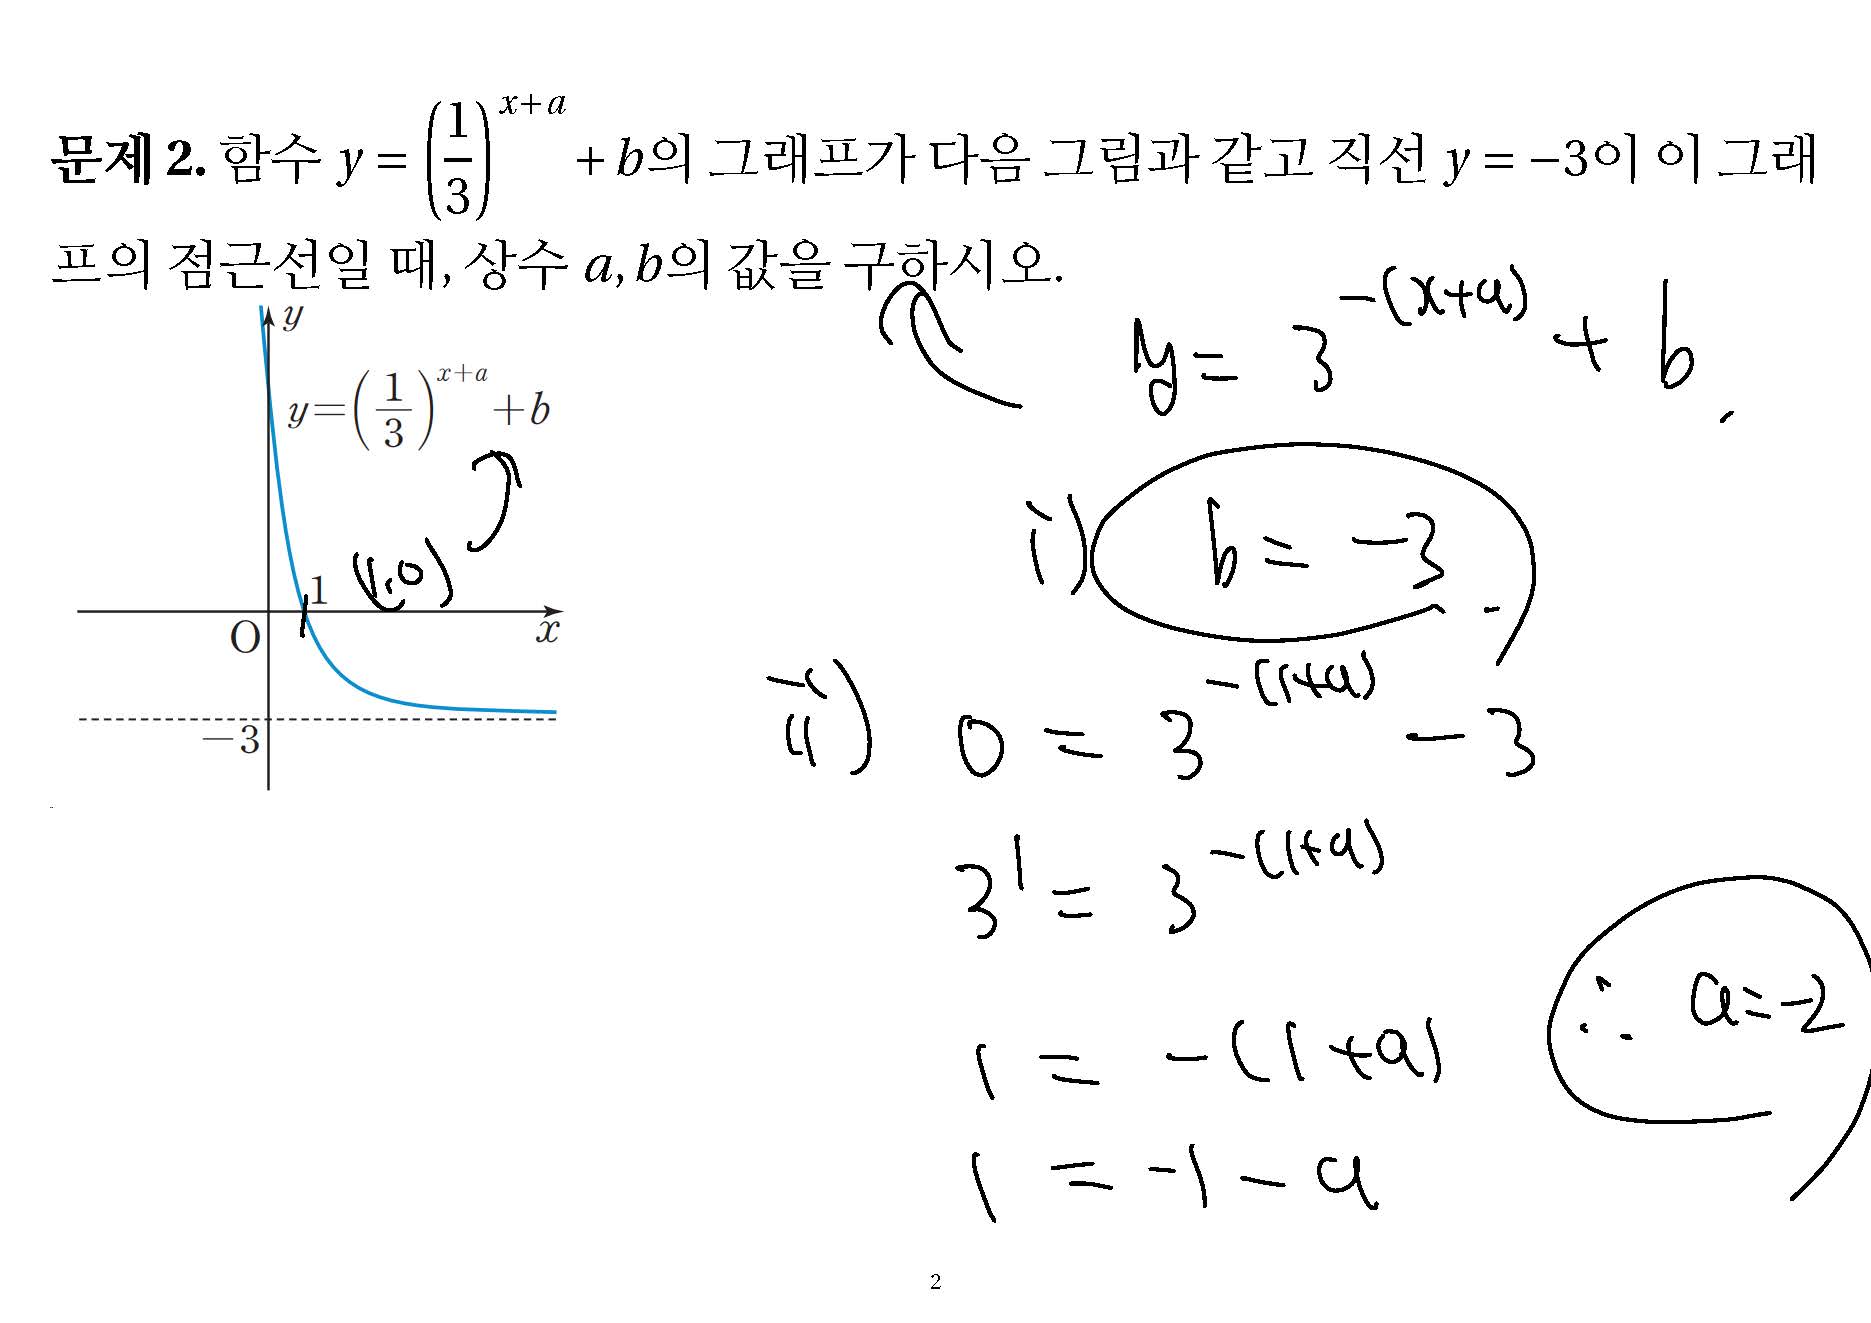 문제 2. 함수 y = (1/3)^(x+a) + b의 그래프가 다음 그림과 같고 직선 y = −3이 이 그래
프의 점근선일 때, 상수 a, b의 값을 구하시오.
y
y=(1/3)^(x+a) +b
1
(1,0)
O
x
−3
y = 3^(-(x+a)) + b.
i) b = -3
ii) 0 = 3^(-(1+a)) - 3
3^1 = 3^(-(1+a))
1 = -(1+a)
1 = -1 - a
∴ a = -2
2